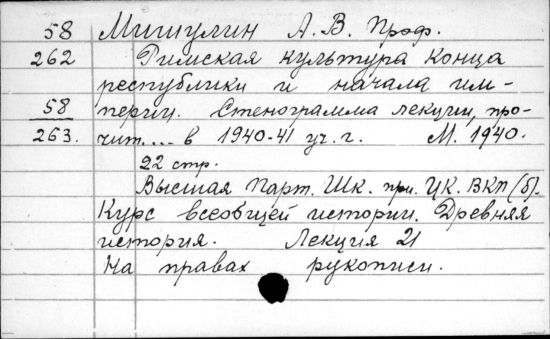 58 Мишулин А. В. Проф.
262 Римская культура конца
республики и начала им-
58 перии. Стенограмма лекции, про-
263. чит.... в 1940-41 уч. г. М. 1940.
22 стр.
Высшая Парт. Шк. при ЦК. ВКП(б).
Курс всеобщей истории. Древняя
история. Лекция 21
На правах рукописи.